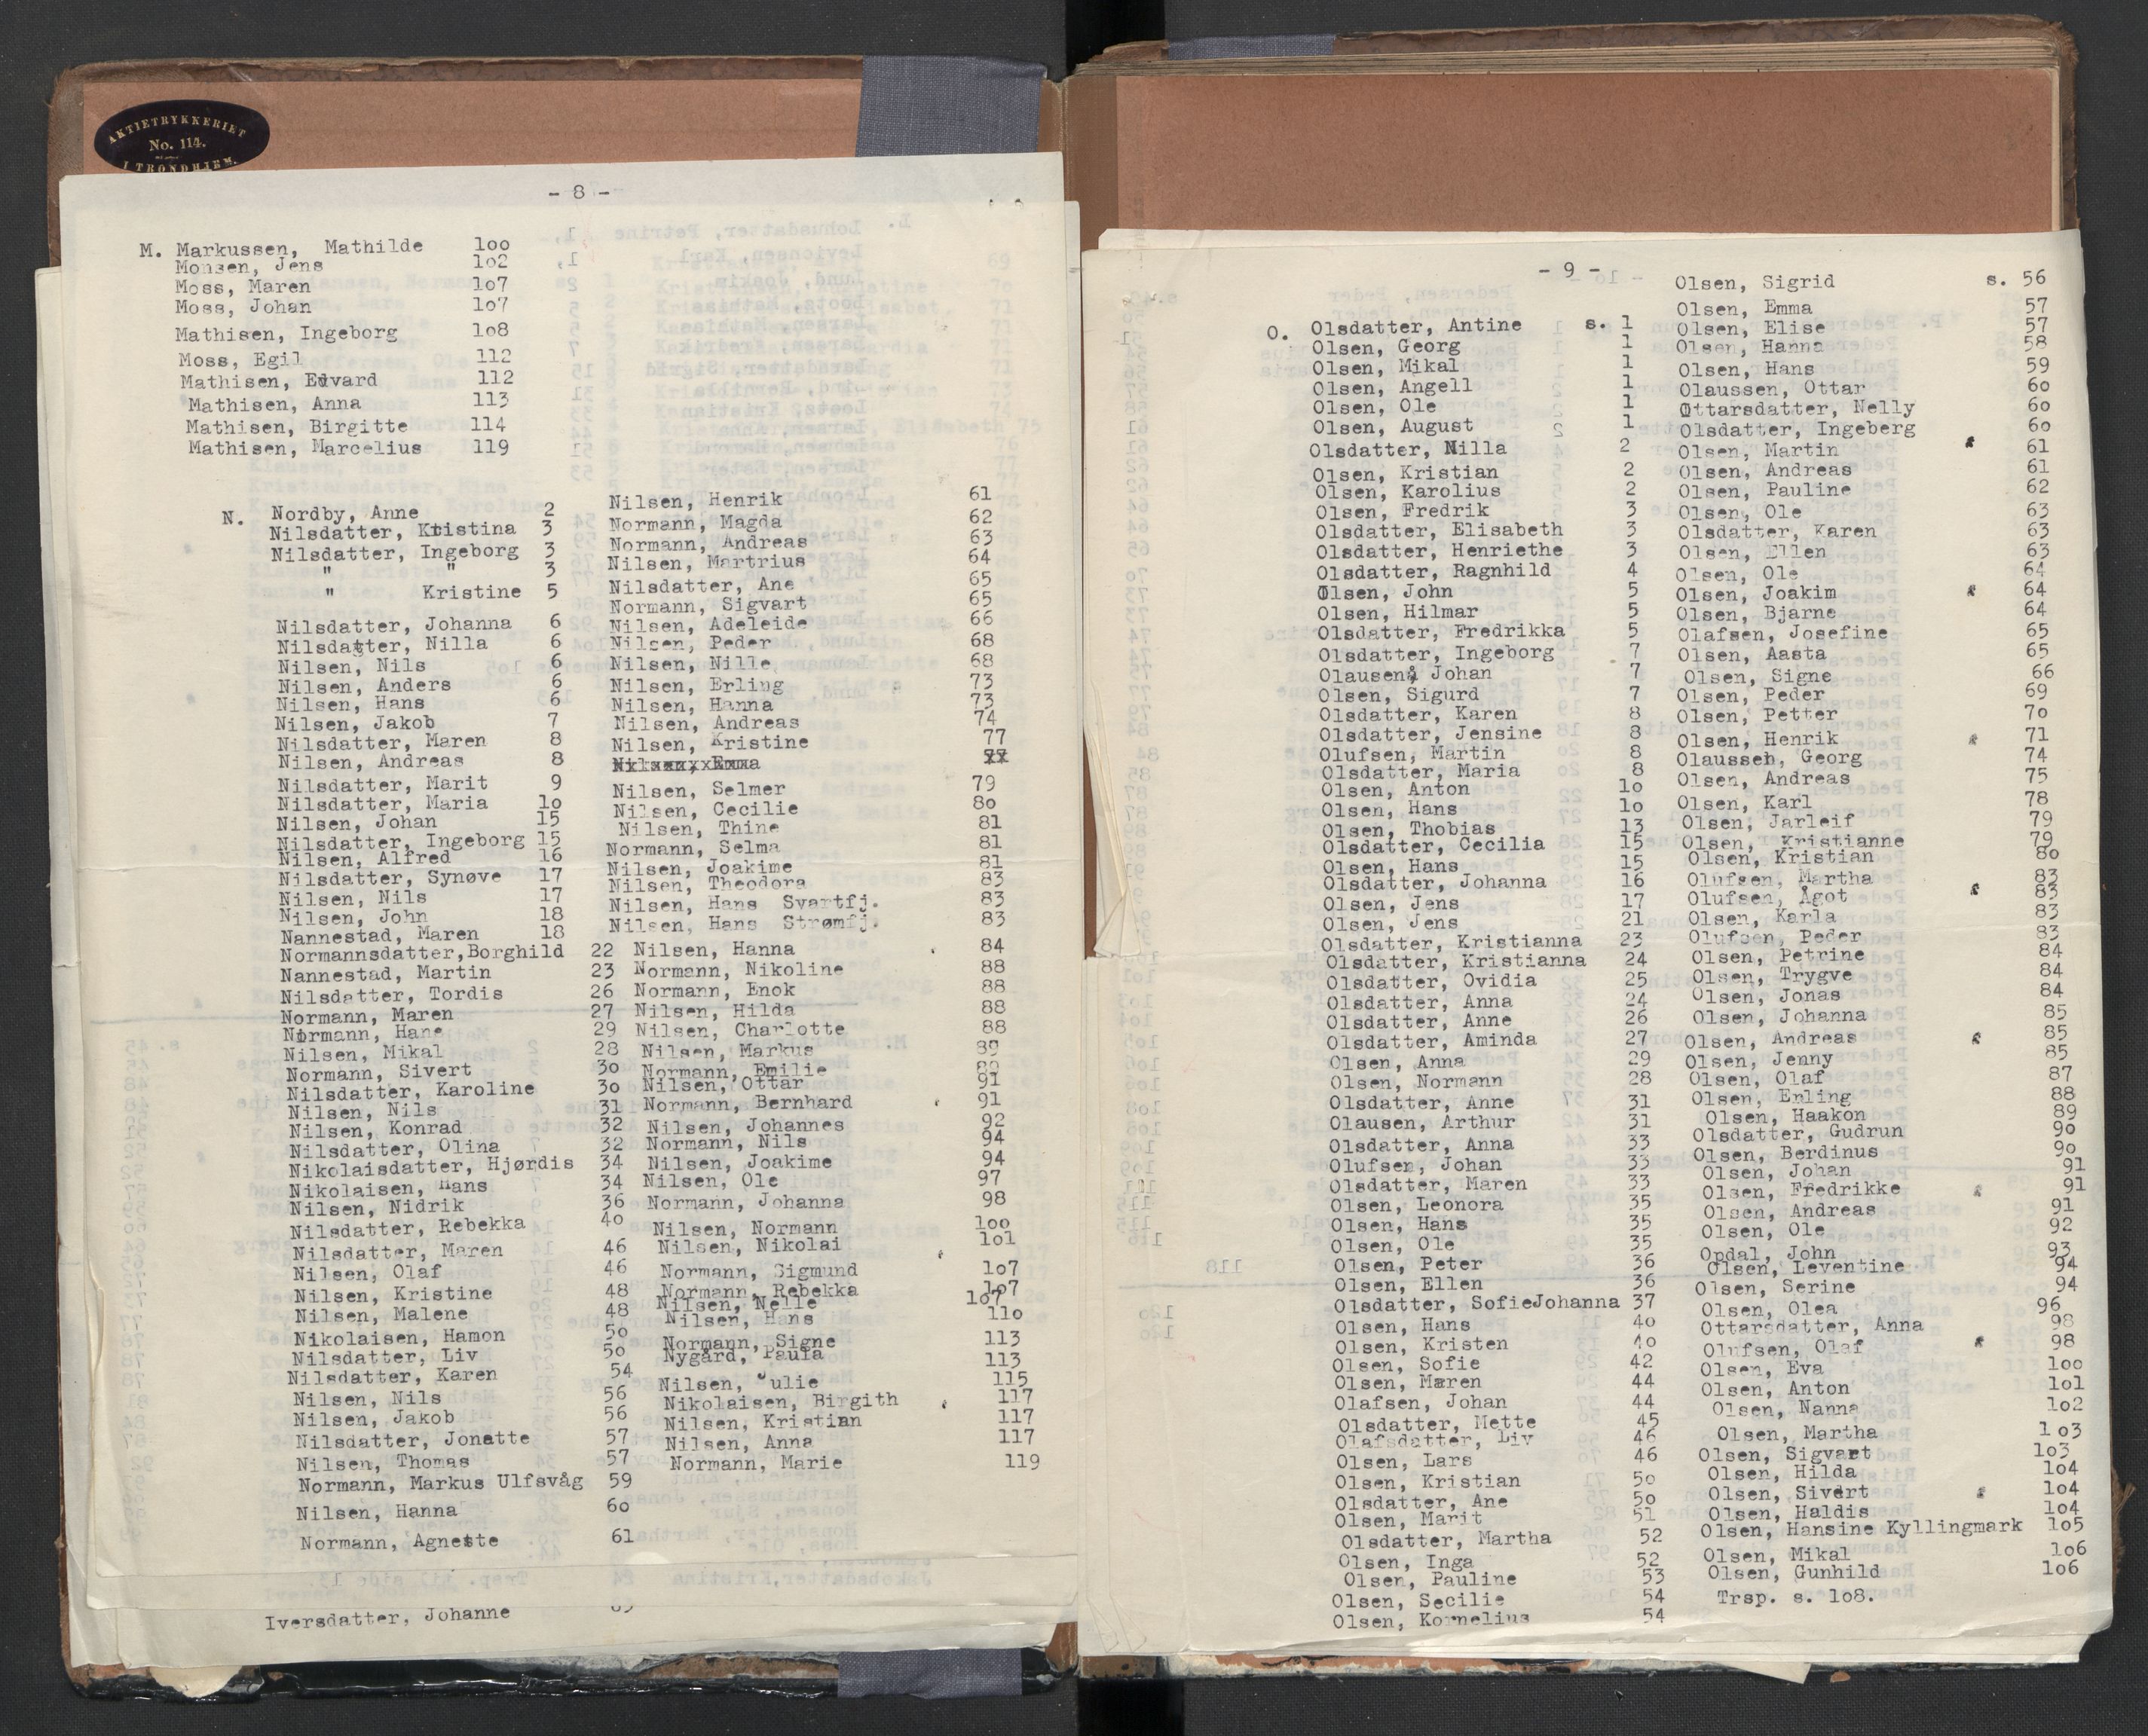 AKTIETRYKKERIET
No. 114.
I TRONDHJEM.
- 8 -
M. Markussen, Mathilde 1oo
Monsen, Jens 1o2
Moss, Maren 1o7
Moss, Johan 1o7
Mathisen, Ingeborg 1o8
Moss, Egil 112
Mathisen, Edvard 112
Mathisen, Anna 113
Mathisen, Birgitte 114
Mathisen, Marcelius 119
N. Nordby, Anne 2
Nilsdatter, Kristina 3
Nilsdatter, Ingeborg 3
" " 3
" Kristine 5
Nilsdatter, Johanna 6
Nilsdatter, Nilla 6
Nilsen, Nils 6
Nilsen, Anders 6
Nilsen, Hans 6
Nilsen, Jakob 7
Nilsdatter, Maren 8
Nilsen, Andreas 8
Nilsdatter, Marit 9
Nilsdatter, Maria 1o
Nilsen, Johan 15
Nilsdatter, Ingeborg 15
Nilsen, Alfred 16
Nilsdatter, Synøve 17
Nilsen, Nils 17
Nilsen, John 18
Nannestad, Maren 18
Normannsdatter,Borghild 22
Nannestad, Martin 23
Nilsdatter, Tordis 26
Normann, Maren 27
Normann, Hans 29
Nilsen, Mikal 28
Normann, Sivert 3o
Nilsdatter, Karoline 3o
Nilsen, Nils 31
Nilsen, Konrad 32
Nilsdatter, Olina 32
Nikolaisdatter, Hjørdis 34
Nikolaisen, Hans 34
Nilsen, Nidrik 36
Nilsdatter, Rebekka 4o
Nilsdatter, Maren 46
Nilsen, Olaf 46
Nilsen, Kristine 48
Nilsen, Malene 48
Nikolaisen, Hamon 5o
Nilsdatter, Liv 5o
Nilsdatter, Karen 54
Nilsen, Nils 56
Nilsen, Jakob 56
Nilsdatter, Jonatte 57
Nilsen, Thomas 57
Normann, Markus Ulfsvåg 59
Nilsen, Hanna 6o
Normann, Agnette 61
Nilsen, Henrik 61
Normann, Magda 62
Normann, Andreas 63
Nilsen, Martrius 64
Nilsdatter, Ane 65
Normann, Sigvart 65
Nilsen, Adeleide 66
Nilsen, Peder 68
Nilsen, Nille 68
Nilsen, Erling 73
Nilsen, Hanna 73
Nilsen, Andreas 74
Nilsen, Kristine 77
Nilsen, Emma
Nilsen, Selmer 79
Nilsen, Cecilie 8o
Nilsen, Thine 81
Normann, Selma 81
Nilsen, Joakime 81
Nilsen, Theodora 83
Nilsen, Hans Svartfj. 83
Nilsen, Hans Strømfj. 83
Nilsen, Hanna 84
Normann, Nikoline 88
Normann, Enok 88
Nilsen, Hilda 88
Nilsen, Charlotte 88
Nilsen, Markus 89
Normann, Emilie 89
Nilsen, Ottar 91
Normann, Bernhard 91
Nilsen, Johannes 92
Normann, Nils 94
Nilsen, Joakime 94
Nilsen, Ole 97
Normann, Johanna 98
Nilsen, Normann 1oo
Nilsen, Nikolai 1o1
Normann, Sigmund 1o7
Normann, Rebekka 1o7
Nilsen, Nelle 1o7
Nilsen, Hans 11o
Normann, Signe 113
Nygård, Paula 113
Nilsen, Julie 115
Nikolaisen, Birgith 117
Nilsen, Kristian 117
Nilsen, Anna 117
Normann, Marie 119
Iversdatter, Johanne
- 9 -
O. Olsdatter, Antine s. 1
Olsen, Georg 1
Olsen, Mikal 1
Olsen, Angell 1
Olsen, Ole 1
Olsen, August 1
Olsdatter, Nilla 2
Olsen, Kristian 2
Olsen, Karolius 2
Olsen, Fredrik 3
Olsdatter, Elisabeth 3
Olsdatter, Henriethe 3
Olsdatter, Ragnhild 4
Olsen, John 5
Olsen, Hilmar 5
Olsdatter, Fredrikka 5
Olsdatter, Ingeborg 7
Olausen, Johan 7
Olsen, Sigurd 7
Olsdatter, Karen 8
Olsdatter, Jensine 8
Olufsen, Martin 8
Olsdatter, Maria 8
Olsen, Anton 1o
Olsen, Hans 1o
Olsen, Thobias 13
Olsdatter, Cecilia 15
Olsen, Hans 15
Olsdatter, Johanna 16
Olsen, Jens 17
Olsen, Jens 21
Olsdatter, Kristianna 23
Olsdatter, Kristianna 24
Olsdatter, Ovidia 25
Olsdatter, Anna 24
Olsdatter, Anne 26
Olsdatter, Aminda 27
Olsen, Anna 29
Olsen, Normann 28
Olsdatter, Anne 31
Olausen, Arthur 31
Olsdatter, Anna 33
Olufsen, Johan 33
Olsdatter, Maren 33
Olsen, Leonora 35
Olsen, Hans 35
Olsen, Ole 35
Olsen, Peter 36
Olsen, Ellen 36
Olsdatter, SofieJohanna 37
Olsen, Hans 4o
Olsen, Kristen 4o
Olsen, Sofie 42
Olsen, Maren 44
Olafsen, Johan 44
Olsdatter, Mette 45
Olafsdatter, Liv 46
Olsen, Lars 46
Olsen, Kristian 5o
Olsdatter, Ane 5o
Olsen, Marit 51
Olsdatter, Martha 52
Olsen, Inga 52
Olsen, Pauline 53
Olsen, Secilie 54
Olsen, Kornelius 54
Olsen, Sigrid s. 56
Olsen, Emma 57
Olsen, Elise 57
Olsen, Hanna 58
Olsen, Hans 59
Olaussen, Ottar 6o
Ottarsdatter, Nelly 6o
Olsdatter, Ingeberg 6o
Olsen, Martin 61
Olsen, Andreas 61
Olsen, Pauline 62
Olsen, Ole 63
Olsdatter, Karen 63
Olsen, Ellen 63
Olsen, Ole 64
Olsen, Joakim 64
Olsen, Bjarne 64
Olafsen, Josefine 65
Olsen, Aasta 65
Olsen, Signe 66
Olsen, Peder 69
Olsen, Petter 7o
Olsen, Henrik 71
Olaussen, Georg 74
Olsen, Andreas 75
Olsen, Karl 78
Olsen, Jarleif 79
Olsen, Kristianne 79
Olsen, Kristian 8o
Olufsen, Martha 83
Olufsen, Ågot 83
Olsen, Karla 83
Olufsen, Peder 83
Olsen, Petrine 84
Olsen, Trygve 84
Olsen, Jonas 84
Olsen, Johanna 85
Olsen, Andreas 85
Olsen, Jenny 85
Olsen, Olaf 87
Olsen, Erling 88
Olsen, Haakon 89
Olsdatter, Gudrun 9o
Olsen, Berdinus 9o
Olsen, Johan 91
Olsen, Fredrikke 91
Olsen, Andreas 91
Olsen, Ole 92
Opdal, John 93
Olsen, Leventine 94
Olsen, Serine 94
Olsen, Olea 96
Ottarsdatter, Anna 98
Olufsen, Olaf 98
Olsen, Eva 1oo
Olsen, Anton 1o1
Olsen, Nanna 1o2
Olsen, Martha 1o3
Olsen, Sigvart 1o3
Olsen, Hilda 1o4
Olsen, Sivert 1o4
Olsen, Haldis 1o4
Olsen, Hansine Kyllingmark 1o5
Olsen, Mikal 1o6
Olsen, Gunhild 1o6
Trsp. s. 1o8.